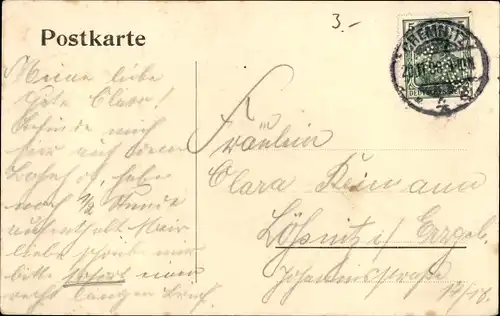 3.-
Postkarte
CHEMNITZ
Meine liebe
gute Clara!
Befinde mich
hier auf dem
Bahnhof, habe
noch 1/2 Stunde
Aufenthalt
liebe schreibe mir
bitte sofort einen
recht langen Brief.
Fräulein
Clara Reimann
Lößnitz i/ Erzgeb.
Johannisstraße